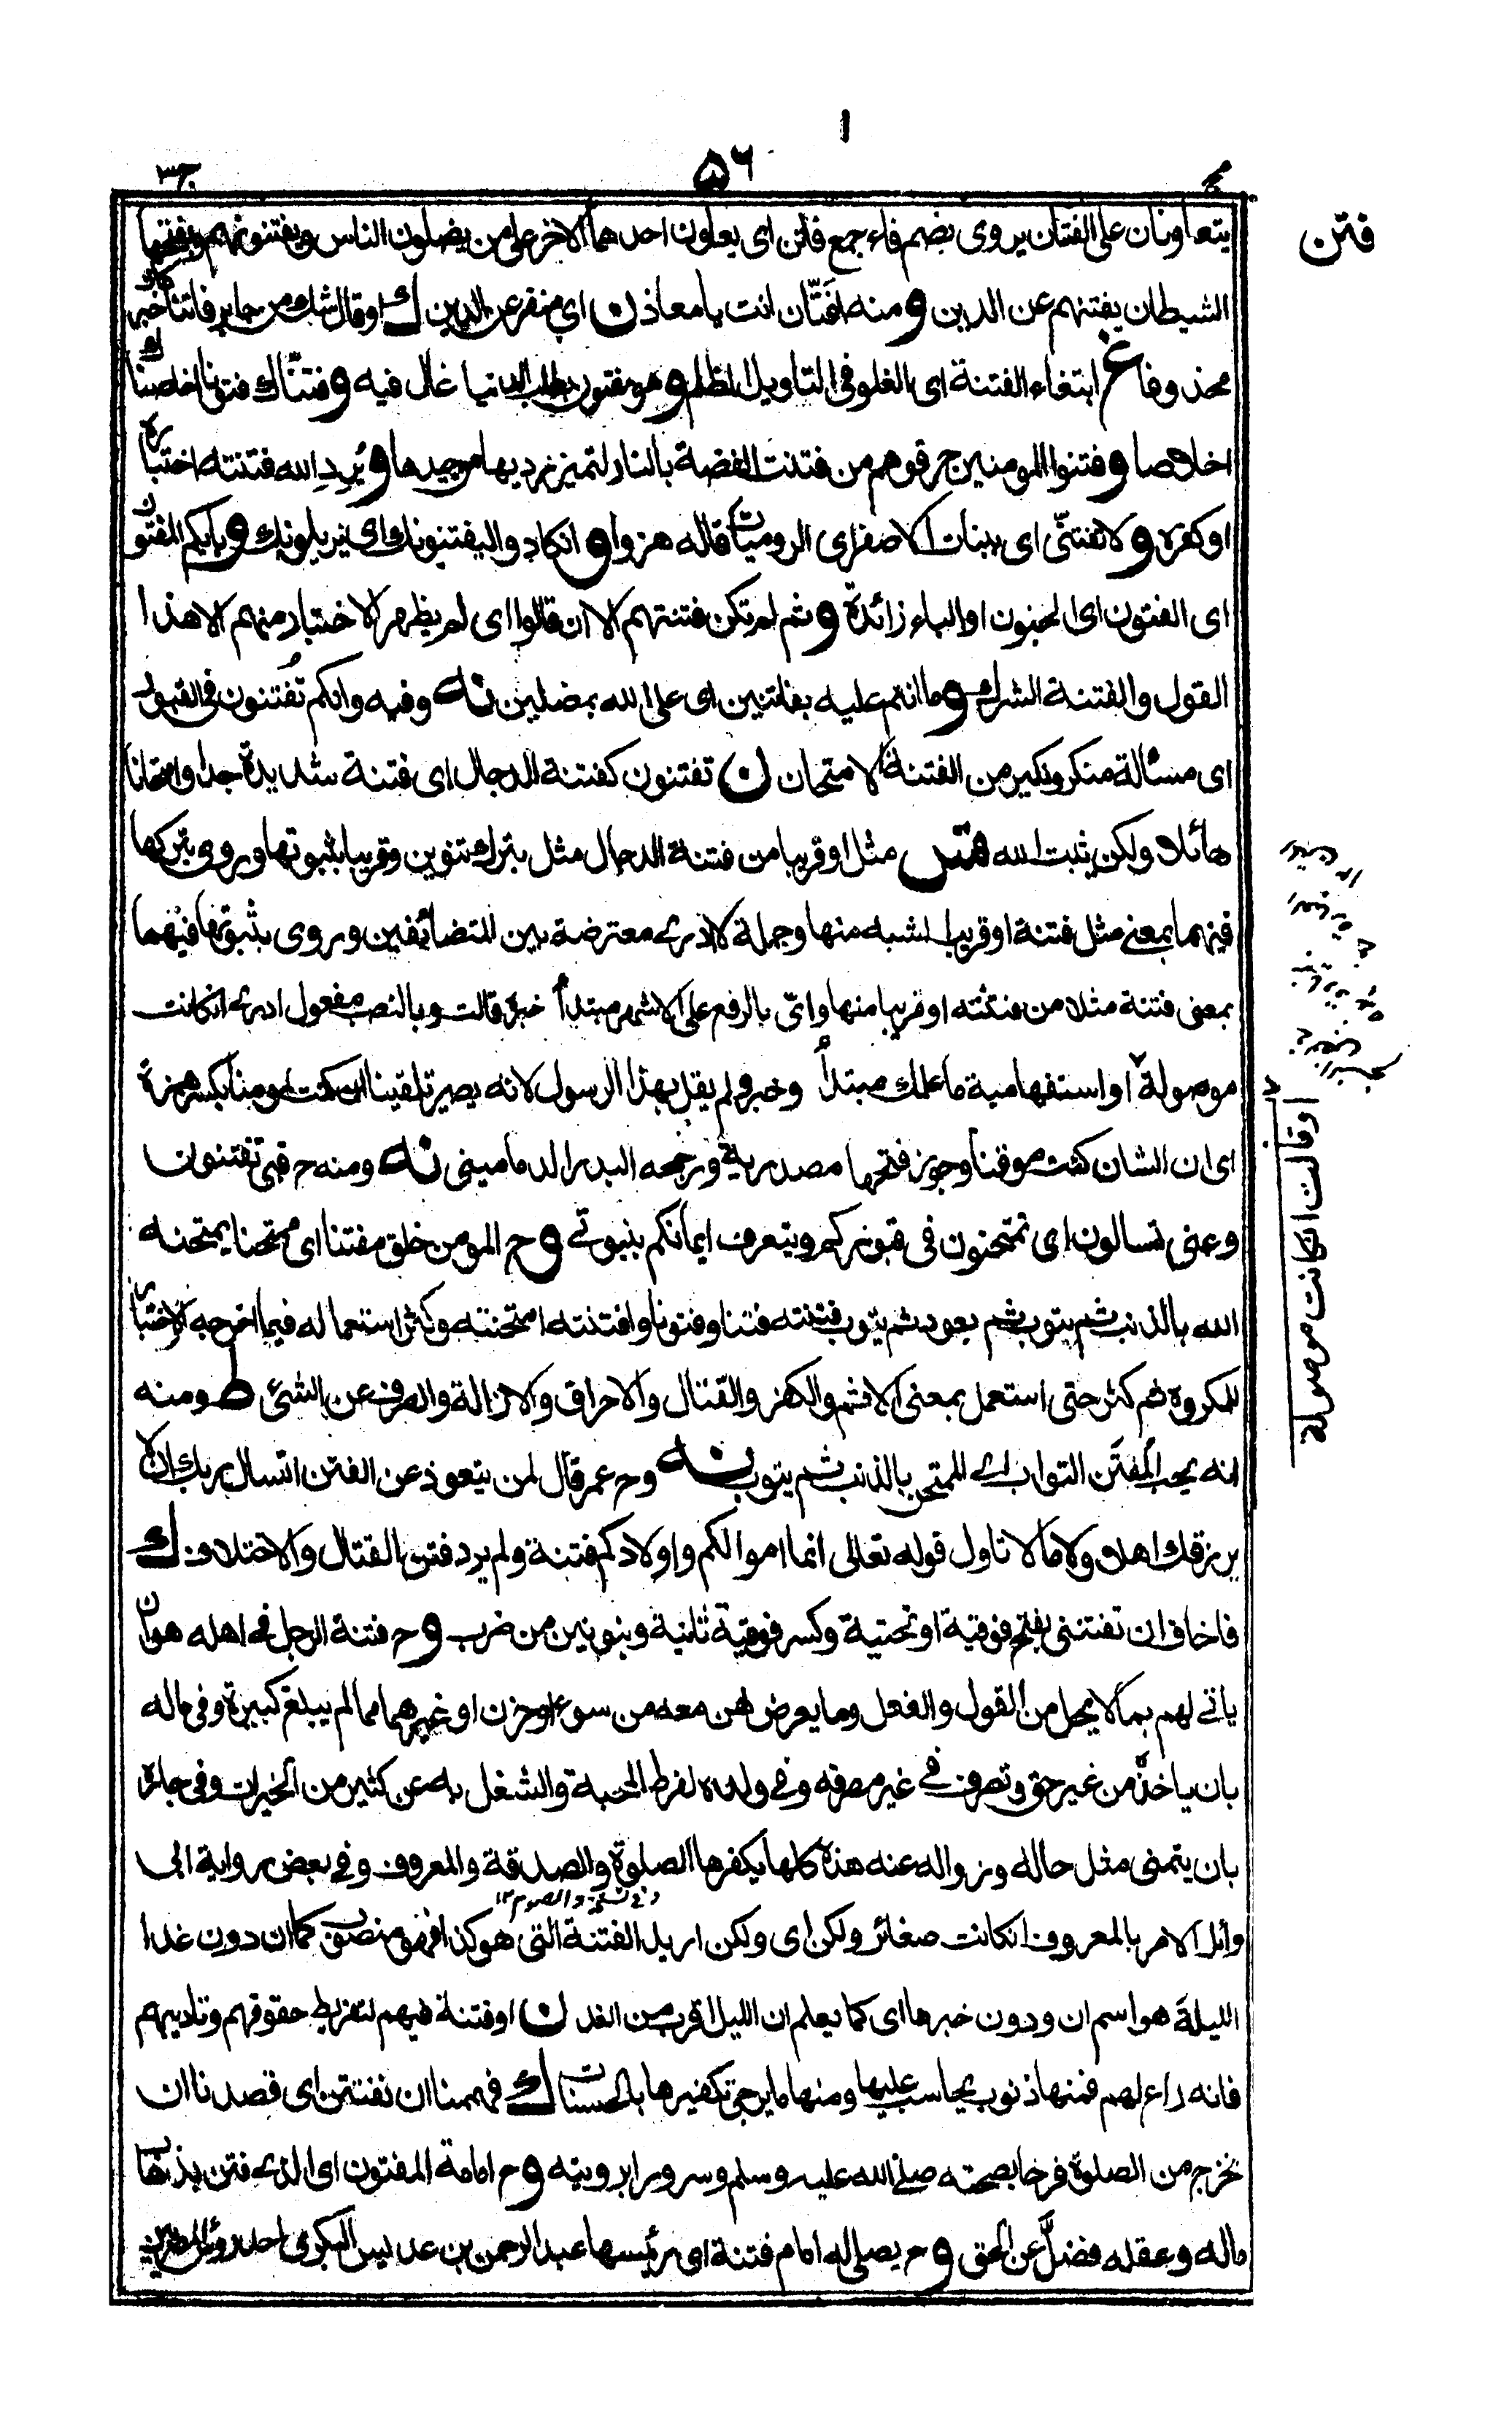 ۵۶
ج۳
فتن
يتعاونان على الفتان يروى بضم فاء جمع فاتن اى يعاون احدهما الاخر على من يضلون الناس ويفتنونهم وبفتحها
الشيطان يفتنهم عن الدين و منه افتّان انت يا معاذ ن اى منفر عن الدين ك او قال شك من جابر فاتنا خبر كان
محذوفا غ ابتغاء الفتنة اى الغلو فى التاويل المظلم و هو مفتون بطلب الدنيا غال فيه و فتنّاك فتونا اخلصناك
اخلاصا و فتنوا المومنين حرقوهم من فتنت الفضة بالنار لتميز رديها من جيدها و يُرِدِ الله فتنته اختباره
او كفره و لا تفتنّى اى ببنات الاصفر اى الروميات قاله هزوا و ان كادوا ليفتنونك اى يزيلونك و بايكم المفتون
اى الفتون اى الجنون او الباء زائدة و ثم لم تكن فتنتهم الا ان قالوا اى لم يظهر الاختبار منهم الا هذا
القول والفتنة الشرك و ما انتم عليه بفاتنين اى على الله بمضلين نه وفيه وانكم تُفتنون فى القبور
اى مسألة منكر ونكير من الفتنة الامتحان ن تفتنون كفتنة الدجال اى فتنة شديدة جدا وامتحانا
هائلا ولكن يثبت الله مثل او قريبا من فتنة الدجال مثل بترك تنوين وقريبا بثبوتها وروى بتركها
فيهما بمعنى مثل فتنة او قريب الشبه منها وجملة لا ادرى معترضة بين المتضائفين وروى بثبوتها فيهما
بمعنى فتنة مثلا من فتنته او قريبا منها واىّ بالرفع على الاشهر مبتدأ خبره قالت وبالنصب مفعول ادرى انكانت
موصولة او استفهامية ما علمك مبتدأ وخبر ولم يقل بهذا الرسول لانه يصير تلقينا ان كنت لمومنا بكسر همزة
اى ان الشان كنت موقنا وجوز فتحها مصدرية ورجحه البدر الدمامينى نه ومنه ح فبى تفتنون
وعنى تسالون اى تمتحنون فى قبوركم ويتعرف ايمانكم بنبوتى و ح المومن خلق مفتنا اى ممتحنا يمتحنه
الله بالذنب ثم يتوب ثم يعود ثم يتوب فتنته فتنا وفتونا وافتنته امتحنته وكثر استعماله فيما اخرجه الاختبار
للمكروه ثم كثر حتى استعمل بمعنى الاثم والكفر والقتال والاحراق والازالة والصرف عن الشئ ط ومنه
انه يحب المُفتَّن التواب اى الممتحن بالذنب ثم يتوب نه وح عمر قال لمن يتعوذ عن الفتن اتسال ربك ان لا
يرزقك اهلا ولا مالا تاول قوله تعالى انما اموالكم واولادكم فتنة ولم يرد فتن القتال والاختلاف ك
فاخاف ان تفتننى بفتح فوقية او تحتية وكسر فوقية ثانية وبنونين من ضرب و ح فتنة الرجل فى اهله هو ان
ياتى لهم بما لا يحل من القول والفعل وما يعرض لهن معه من سوء او حزن او غيرهما مما لم يبلغ كبيرة وفى ماله
بان ياخذه من غير حق وتصرف فى غير مصرفه وفى ولده لفرط المحبة والشغل به عن كثير من الخيرات وفى جاره
بان يتمنى مثل حاله وزواله عنه هذه كلها يكفرها الصلوة والصدقة والمعروف وفى بعض رواية ابى
وائل الامر بالمعروف انكانت صغائر ولكن اى ولكن اريد الفتنة التى هو كذا فهو منصب كما ان دون غدا
الليلة هو اسم ان ودون خبرها اى كما يعلم ان الليل اقرب من الغد ن او فتنة فيهم لتفريط حقوقهم وتاديبهم
فانه راع لهم فمنها ذنوب يحاسب عليها ومنها ما يرجى تكفيرها بالحسنات ك فهممنا ان نفتتن اى قصدنا ان
نخرج من الصلوة فرحا بصحته صلى الله عليه وسلم وسرورا برويته و ح امامة المفتون اى الذى فتن بذهاب
ماله وعقله فضلَّ عن الحق و ح يصلى له امام فتنة اى رئيسها عبد الرحمن بن عديس البكرى احد رؤس المصريين
او قالت انكانت موصولة